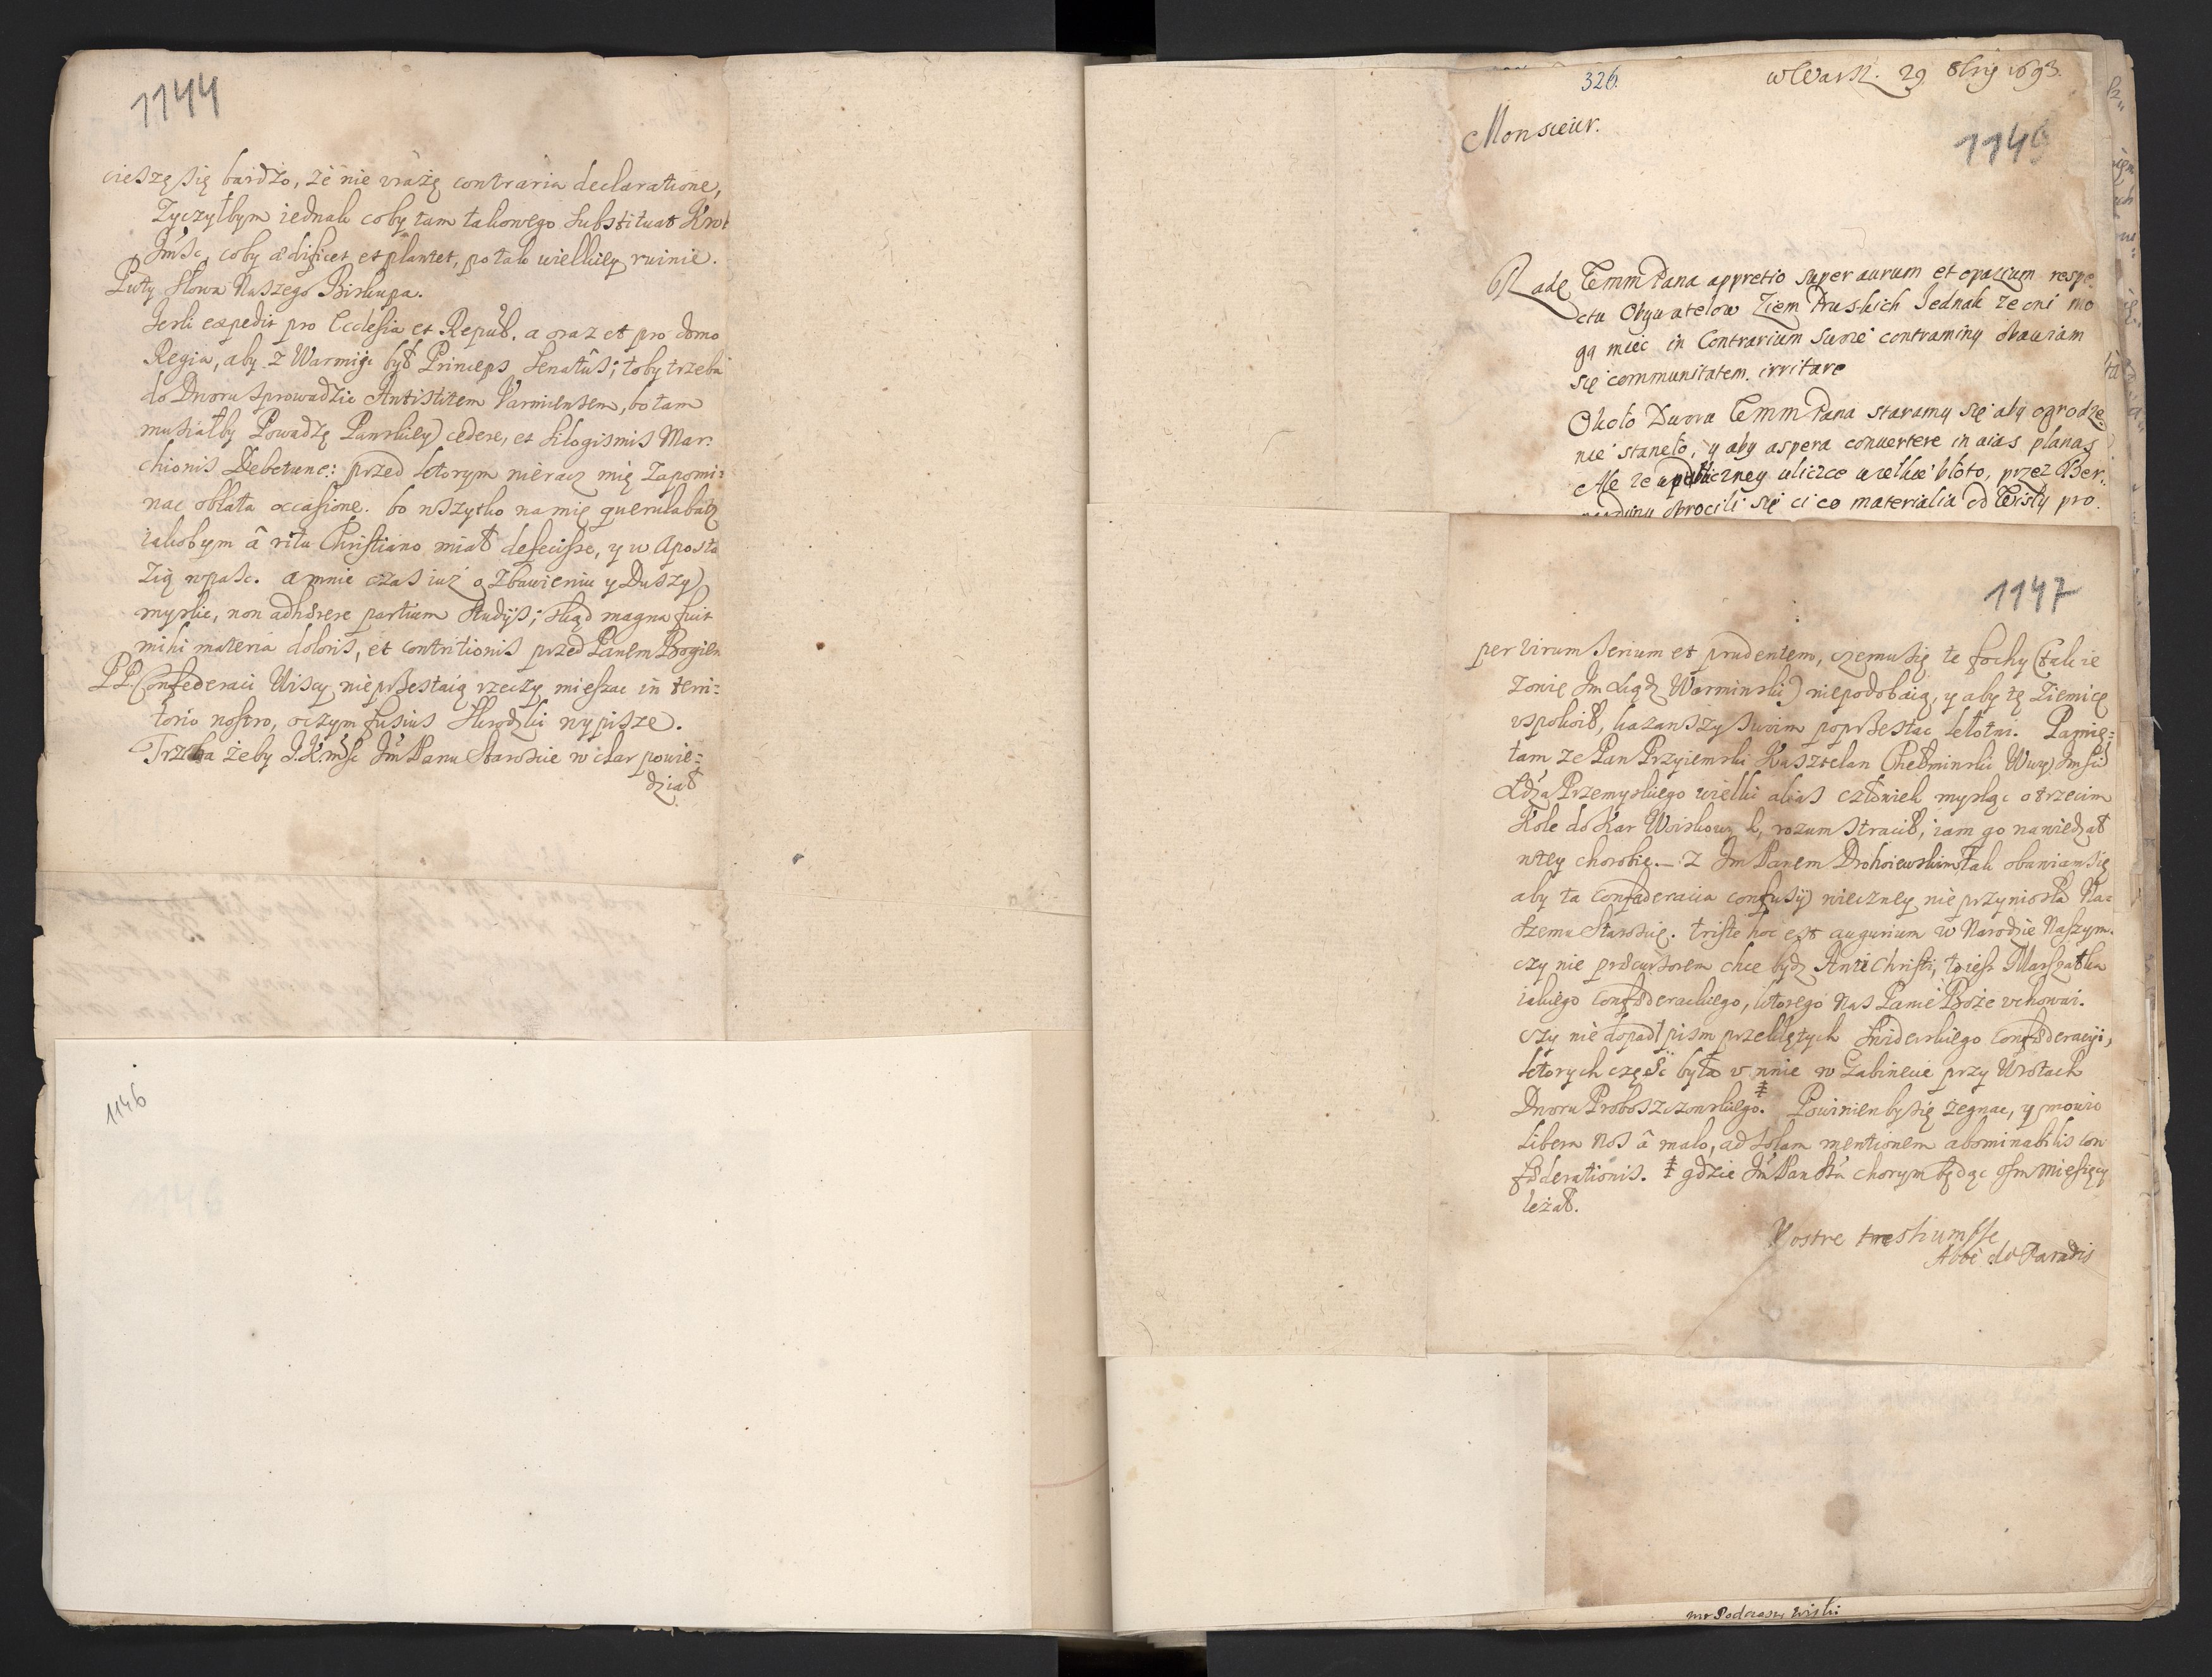 1144
cieszę się bardzo, że nie vrażę contraria declaratione,
Zyczyłbym iednak coby tam takowego substituat Kro
Jmsc, coby ædificet et plantet, po tak wielkiey ruinie.
Puty słowa Naszego Biskupa.
Jesli expedit pro Ecclesia et Repub. a oraz et pro domo
Regia, aby z Warmiji był Princeps Senatûs; toby trzeba
do Dworu sprowadzic Antistitem Varmiensem, bo tam
musiałby Powadze Panskiey cedere, et silogismis Mar:
chionis Debetune: przed ktorym nieracz mię zapomi:
nac oblata occasione. bo wszytko na mię querulabatz
iakobym â ritu Christiano miał defecisse, y w Aposta
zią wpasc. a mnie czas iuż o Zbawieniu y Duszy
myslic, non adhærere partium studijs; skąd magna fuit
mihi materia doloris, et contritionis przed Panem Bogiem
PP. Confederaci Wiscy nieprzestaią rzeczy mieszac in terri:
torio nostro, oczym fusius Skrodzki wypisze.
Trzeba żeby J.K.mśc Jm Panu Staroscie w clar powie:
dział
1146
326.
w Wars. 29 8bris 1693.
Monsieur.
1146
Radę Wmm Pana appretio super aurum et opazium respe
ctu Obywatelow Ziem Pruskich Jednak ze oni mo
gą miec in Contrarium swoie contraminy obawiam
się communitatem. irritare
Około Dwora Wmm Pana staramy się aby ogrodze
nie stanęło, y aby aspera convertere in vias planas
Ale ze w publiczney uliczce wielkie błoto, przez Ber.
obrocili się ci co materialia od Wisły pro.
1147
per virum serium et prudentem, czemu się te fochy (tak ie
zowie Jm Xiądz Warminski) niepodobaią, y aby tę Ziemicę
vspokoił, kazawszy swoim poprzestac kłotni. Pamię:
tam ze Pan Przyiemski Kasztelan Chełminski Wuy Jmsci
Xdza Przemyskiego wielki alias człowiek mysląc o trzecim
Kole do Kar Woiskowych, rozum stracił, iam go nawiedzał
w tey chorobie. — Z Jm Panem Drohoiewskim tak obawiam się
aby ta confæderacia confusij wieczney nie przyniosła Na:
szemu Staroscie. triste hoc est augurium w Narodzie Naszym.
czy nie præcursorem chce bydz Anti Christi, to iest Marszałka
iakiego confæderackiego, ktorego nas Panie Boże vchoway.
czy nie dopadł pism przeklętych Swiderskiego confæderacyi,
ktorych częsc była v mnie w Gabinecie przy Wrotach
Dworu Proboszczowskiego.ǂ Powinienby się żegnac, y mowic
Libera nos â malo, ad solam mentionem abominabilis con
fæderationis. ǂ gdzie Jm Pan Sta chorym będąc osm miesięcy
leżał.
Vostre
Abbé de Paradis
mr Podczaszy